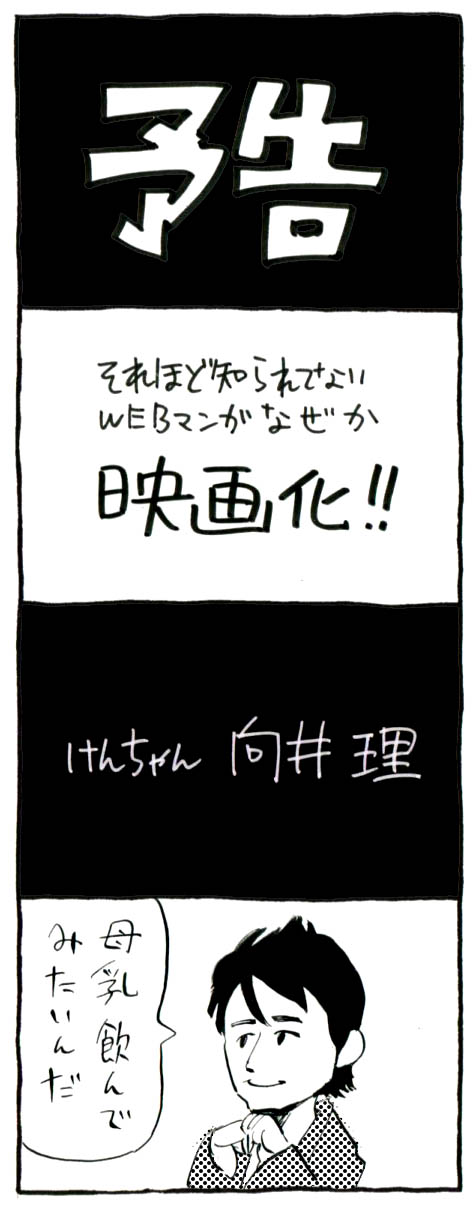 予告
それほど知られてない
WEBマンガなぜか
映画化!!
けんちゃん 向井 理
母乳飲んで
みたいんだ